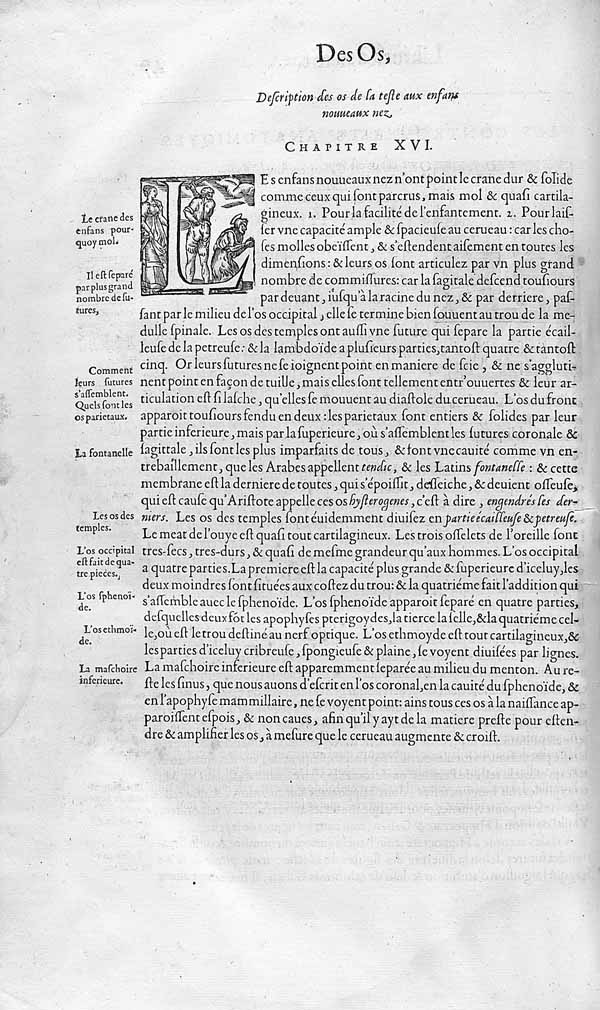 Des Os,
Deſcription des os de la teſte aux enfans
nouueaux nez,
CHAPITRE XVI.
LEs enfans nouueaux nez n'ont point le crane dur & ſolide
comme ceux qui ſont parcrus, mais mol & quaſi cartila-
gineux. 1. Pour la facilité de l'enfantement. 2. Pour laiſ-
ſer vne capacité ample & ſpacieuſe au cerueau: car les cho-
ſes molles obeïſſent, & s'eſtendent aiſement en toutes les
dimenſions: & leurs os ſont articulez par vn plus grand
nombre de commiſſures: car la ſagitale deſcend touſiours
par deuant, iuſqu'à la racine du nez, & par derriere, paſ-
ſant par le milieu de l'os occipital, elle ſe termine bien ſouuent au trou de la me-
dulle ſpinale. Les os des temples ont auſſi vne ſuture qui ſepare la partie écail-
leuſe de la petreuſe: & la lambdoïde a pluſieurs parties, tantoſt quatre & tantoſt
cinq. Or leurs ſutures ne ſe ioignent point en maniere de ſcie, & ne s'aggluti-
nent point en façon de tuille, mais elles ſont tellement entr'ouuertes & leur ar-
ticulation eſt ſi laſche, qu'elles ſe mouuent au diaſtole du cerueau. L'os du front
apparoit touſiours fendu en deux: les parietaux ſont entiers & ſolides par leur
partie inferieure, mais par la ſuperieure, où s'aſſemblent les ſutures coronale &
ſagittale, ils ſont les plus imparfaits de tous, & font vne cauité comme vn en-
trebaillement, que les Arabes appellent tendic, & les Latins fontanelle: & cette
membrane eſt la derniere de toutes, qui s'époiſſit, deſſeiche, & deuient oſſeuſe,
qui eſt cauſe qu'Ariſtote appelle ces os hyſterogenes, c'eſt à dire, engendrés les der-
niers. Les os des temples ſont éuidemment diuiſez en partie écailleuſe & petreuſe.
Le meat de l'ouye eſt quaſi tout cartilagineux. Les trois oſſelets de l'oreille ſont
tres-ſecs, tres-durs, & quaſi de meſme grandeur qu'aux hommes. L'os occipital
a quatre parties. La premiere eſt la capacité plus grande & ſuperieure d'iceluy, les
deux moindres ſont ſituées aux coſtez du trou: & la quatriéme fait l'addition qui
s'aſſemble auec le ſphenoïde. L'os ſphenoïde apparoit ſeparé en quatre parties,
deſquelles deux sõt les apophyſes pterigoydes, la tierce la ſelle, & la quatriéme cel-
le, où eſt le trou deſtiné au nerf optique. L'os ethmoyde eſt tout cartilagineux, &
les parties d'iceluy cribreuſe, ſpongieuſe & plaine, ſe voyent diuiſées par lignes.
La maſchoire inferieure eſt apparemment ſeparée au milieu du menton. Au re-
ſte les ſinus, que nous auons d'eſcrit en l'os coronal, en la cauité du ſphenoïde, &
en l'apophyſe mammillaire, ne ſe voyent point: ains tous ces os à la naiſſance ap-
paroiſſent eſpois, & non caues, afin qu'il y ayt de la matiere preſte pour eſten-
dre & amplifier les os, à meſure que le cerueau augmente & croiſt.
Le crane des
enfans pour-
quoy mol.
Il eſt ſeparé
par plus grand
nombre de ſu-
tures,
Comment
leurs ſutures
s'aſſemblent.
Quels ſont les
os parietaux.
La fontanelle
Les os des
temples.
L'os occipital
eſt fait de qua-
tre pieces.
L'os ſphenoï-
de.
L'os ethmoï-
de.
La maſchoire
inferieure.